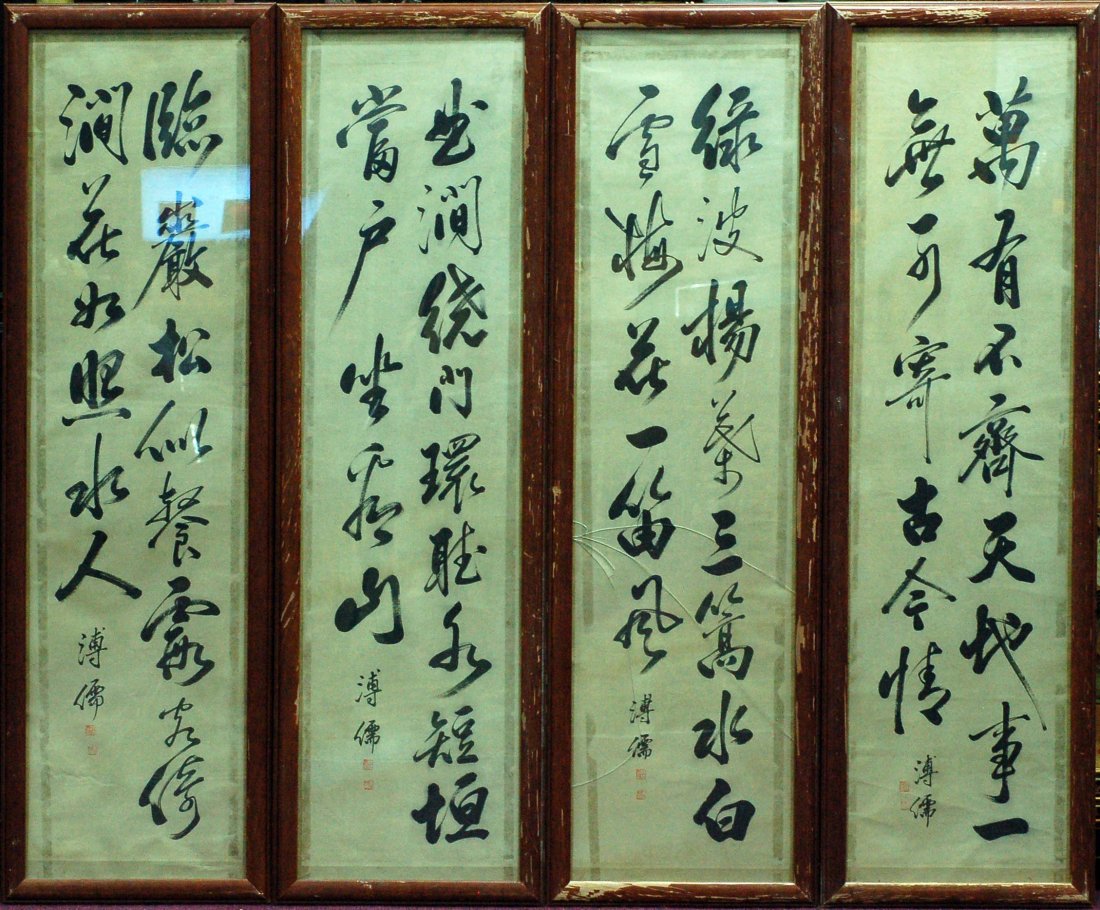 萬有不齊天地事一
無可寄古今情
溥儒
綠波楊葉三篙水白
雪梅花一笛風
溥儒
曲澗繞門環聽水短垣
當戶坐看山
溥儒
臨巖松似餐霞客倚
澗花如照水人
溥儒